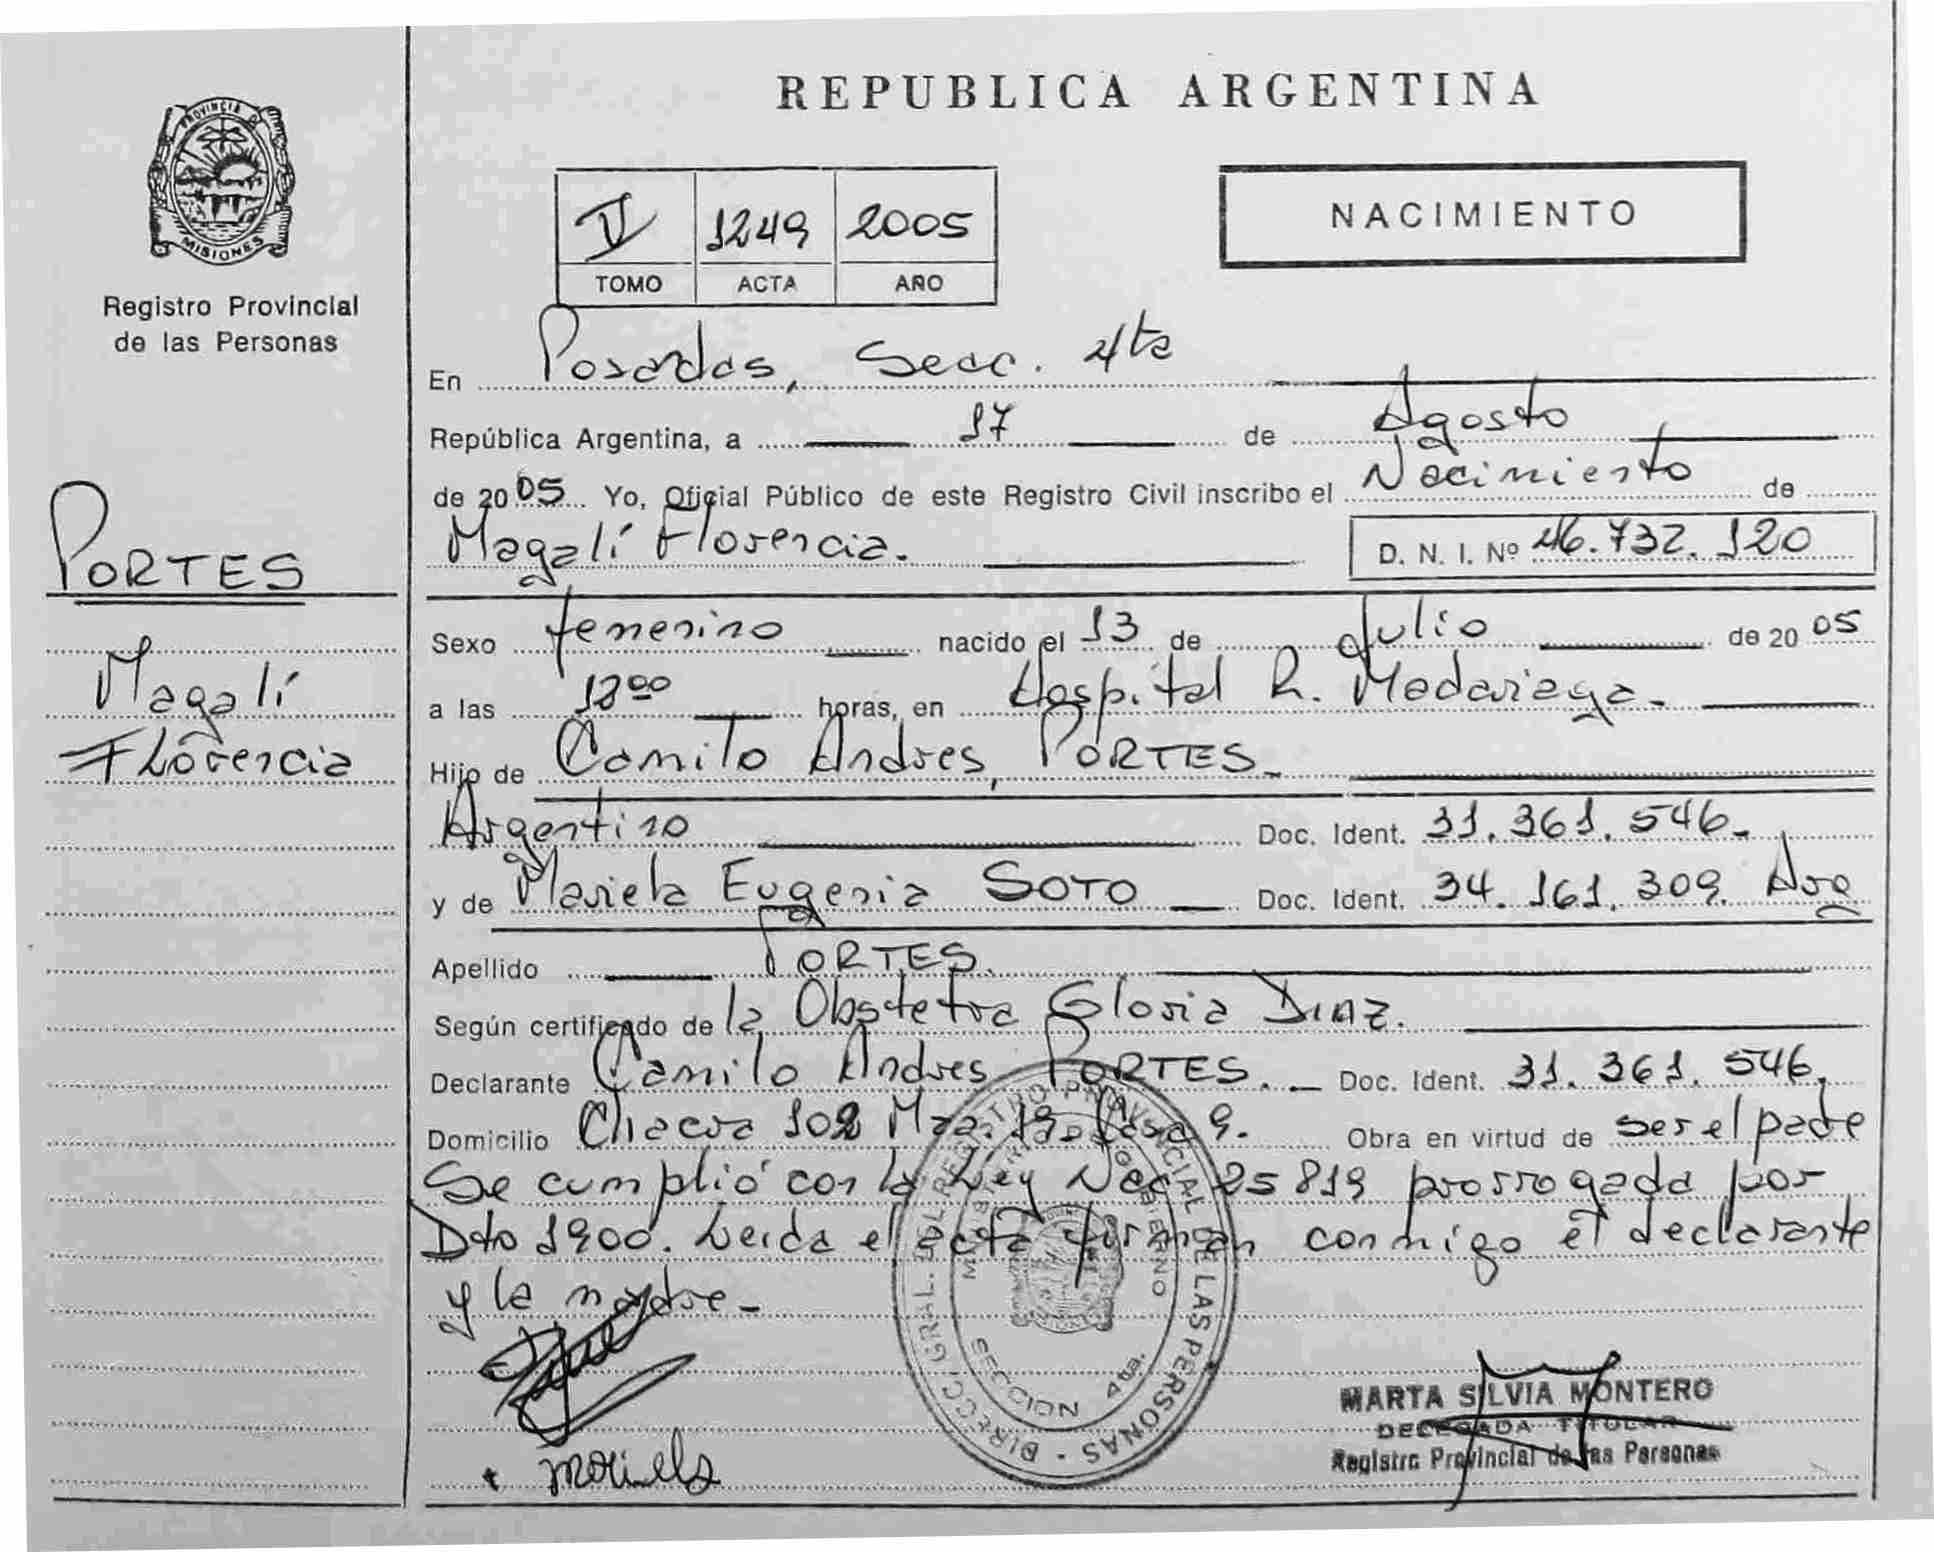 PROVINCIA DE
MISIONES
Registro Provincial
de las Personas
PORTES
Magalí
Florencia
REPUBLICA ARGENTINA
NACIMIENTO
V 1249 2005
TOMO ACTA AÑO
En Posadas, Secc. 4ta
República Argentina, a 17 de Agosto
de 2005 Yo, Oficial Público de este Registro Civil inscribo el Nacimiento de
Magalí Florencia. D. N. I. Nº 46.732.120
Sexo femenino nacido el 13 de Julio de 2005
a las 12 00 horas, en Hospital R. Madariaga.
Hijo de Camilo Andres, PORTES
Argentino Doc. Ident. 31.361.546
y de Mariela Eugenia SOTO Doc. Ident. 34.161.309. Arg
Apellido PORTES.
Según certificado de la Obstetra Gloria DIAZ.
Declarante Camilo Andres PORTES. Doc. Ident. 31.361.546,
Domicilio Chacra 102 Mza. 19 Casa 9. Obra en virtud de ser el padre
Se cumplió con la Ley Nac 25819 prorrogada por
Dto 1900. Leida el acta firman conmigo el declarante
y la madre
Mariela
DIRECC. GRAL. DEL REGISTRO PROVINCIAL DE LAS PERSONAS
GOBIERNO
SECCION 4ta.
MARTA SILVIA MONTERO
DELEGADA TITULAR
Registro Provincial de las Personas